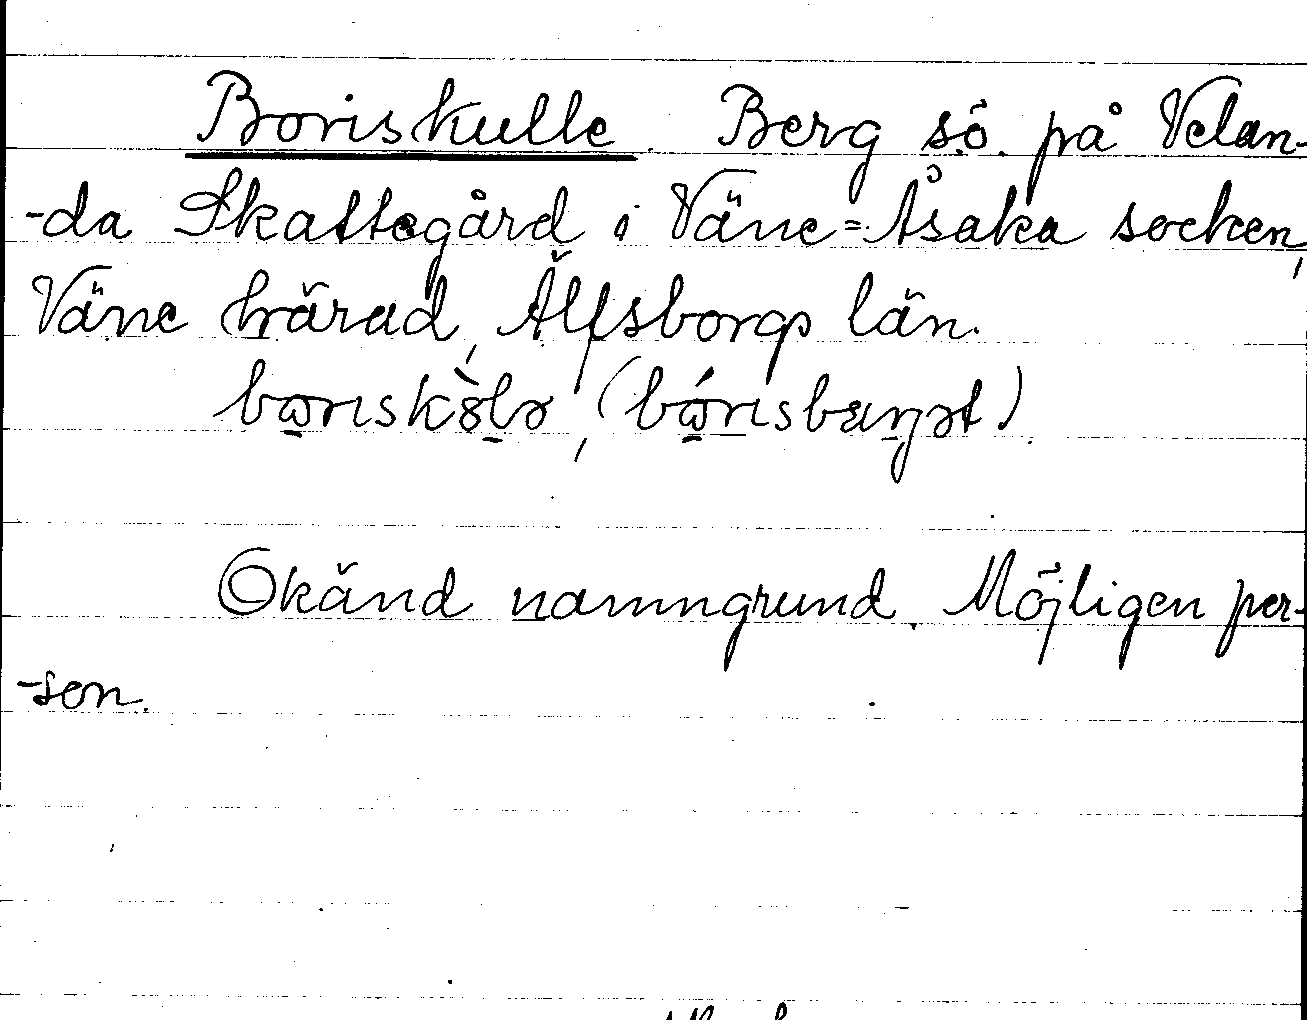 Boriskulle. Berg s.ö. på Velan-
-da Skattegård i Väne=Åsaka socken,
Väne härad, Älfsborgs län.
bo̱riskò̱lə, (bó̱risbærjət).
Okänd namngrund. Möjligen per-
-son.